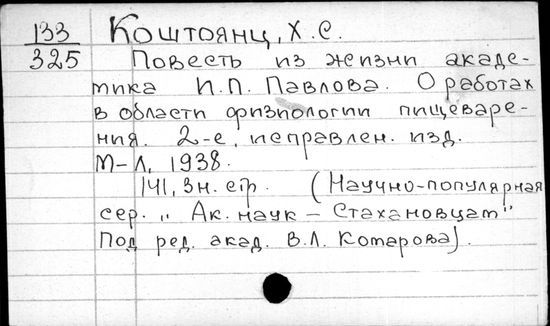 133 Коштоянц, Х.С.
325 Повесть из жизни акаде-
мика И.П. Павлова. О работах
в области физиологии пищеваре-
ния. 2-е, исправлен. изд.
М-Л, 1938.
141, 3 н. стр. (Научно-популярная
сер. „Ак. наук – Стахановцам"
Под ред. акад. В.Л. Комарова).